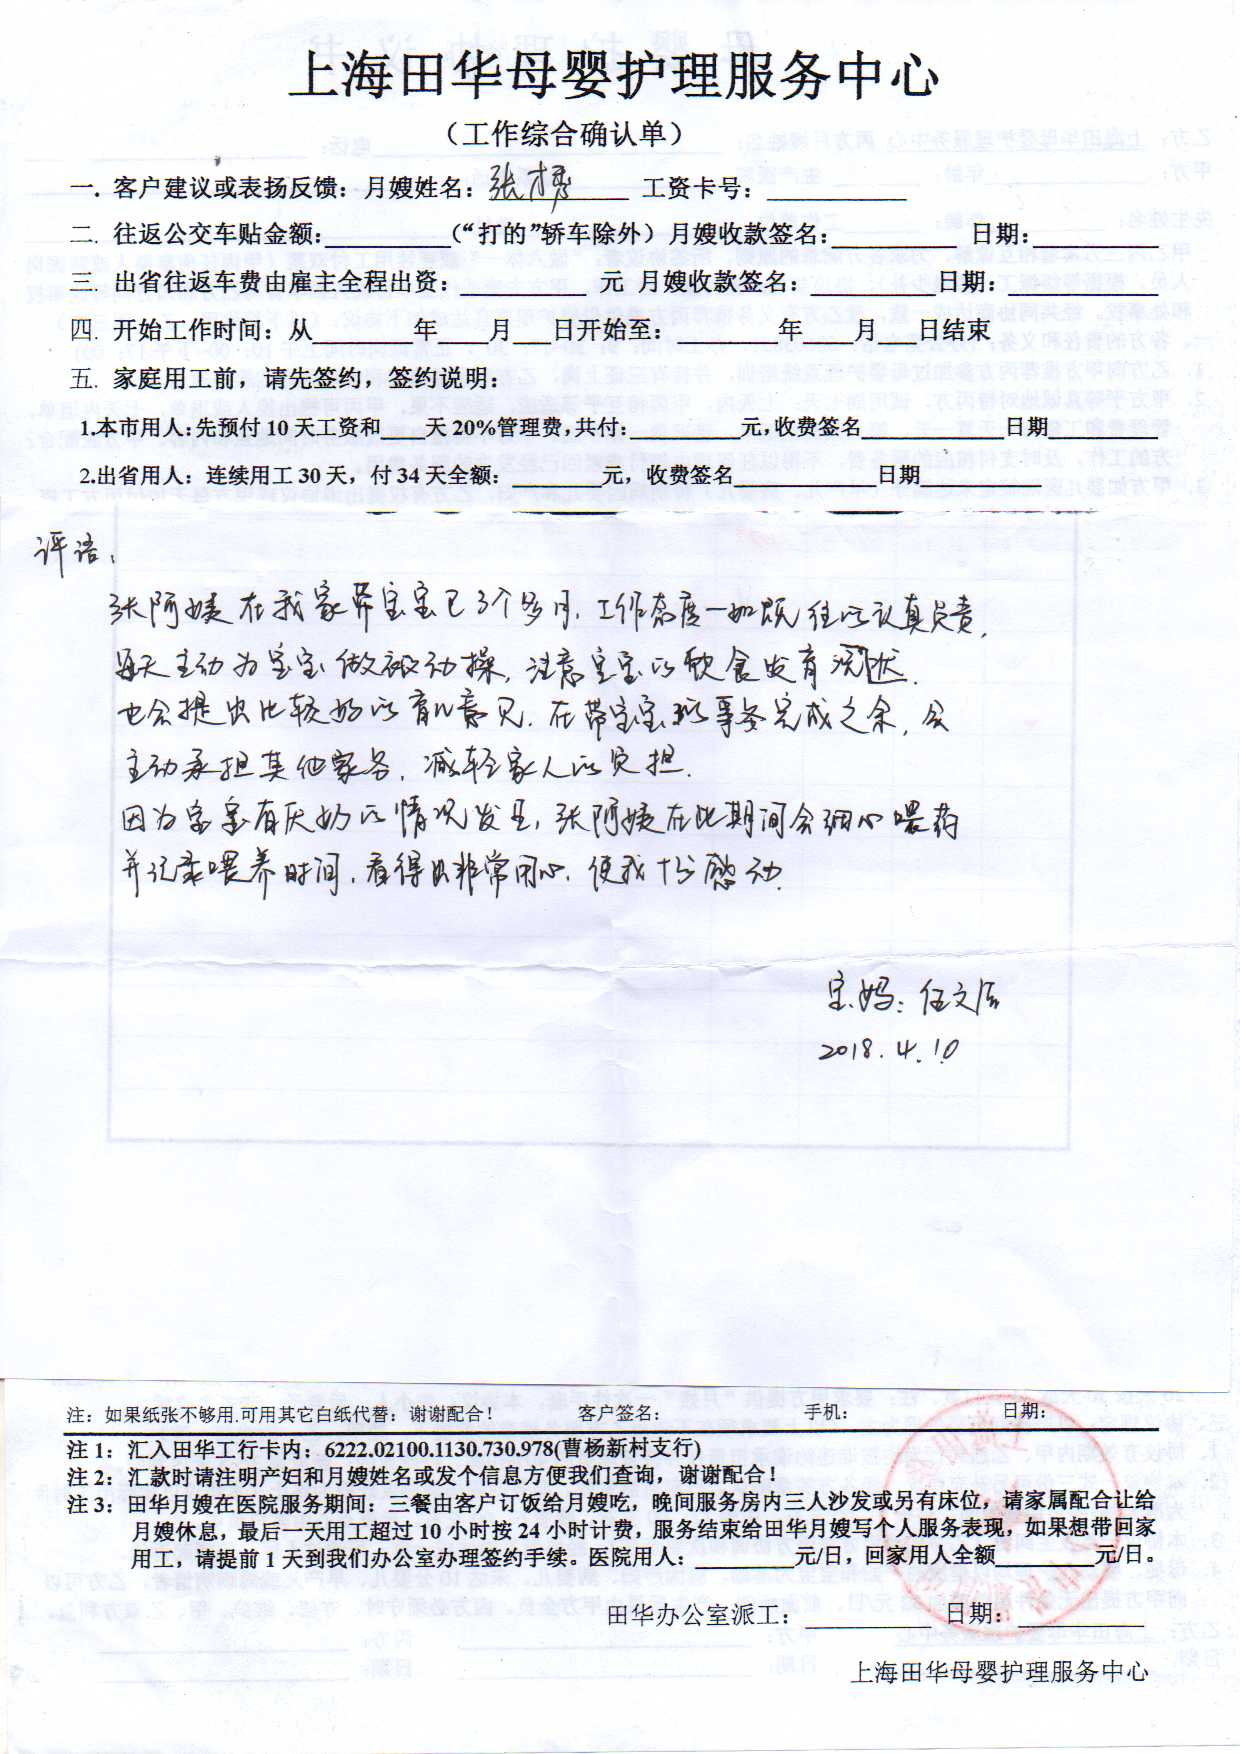 上海田华母婴护理服务中心
（工作综合确认单）
一. 客户建议或表扬反馈：月嫂姓名：张 工资卡号：
二. 往返公交车贴金额：（“打的”轿车除外）月嫂收款签名： 日期：
三. 出省往返车费由雇主全程出资： 元 月嫂收款签名： 日期：
四. 开始工作时间：从 年 月 日开始至： 年 月 日结束
五. 家庭用工前，请先签约，签约说明：
1.本市用人：先预付 10 天工资和 天 20%管理费，共付： 元，收费签名 日期
2.出省用人：连续用工 30 天，付 34 天全额： 元，收费签名 日期
评语：
张阿姨在我家带宝宝已3个多月，工作态度一如既往的认真负责，
每天主动为宝宝做被动操，注意宝宝的饮食发育况状.
也会提出比较好的育儿意见.在带宝宝的事务完成之余，会
主动承担其他家务，减轻家人的负担.
因为宝宝有厌奶的情况发生，张阿姨在此期间会细心喂药
并记录喂养时间，看得出非常用心，使我十分感动.
宝妈：任文
2018.4.10
注：如果纸张不够用.可用其它白纸代替：谢谢配合！ 客户签名： 手机： 日期：
注 1：汇入田华工行卡内：6222.02100.1130.730.978(曹杨新村支行)
注 2：汇款时请注明产妇和月嫂姓名或发个信息方便我们查询，谢谢配合！
注 3：田华月嫂在医院服务期间：三餐由客户订饭给月嫂吃，晚间服务房内三人沙发或另有床位，请家属配合让给
月嫂休息，最后一天用工超过 10 小时按 24 小时计费，服务结束给田华月嫂写个人服务表现，如果想带回家
用工，请提前 1 天到我们办公室办理签约手续。医院用人： 元/日，回家用人全额 元/日。
田华办公室派工： 日期：
上海田华母婴护理服务中心